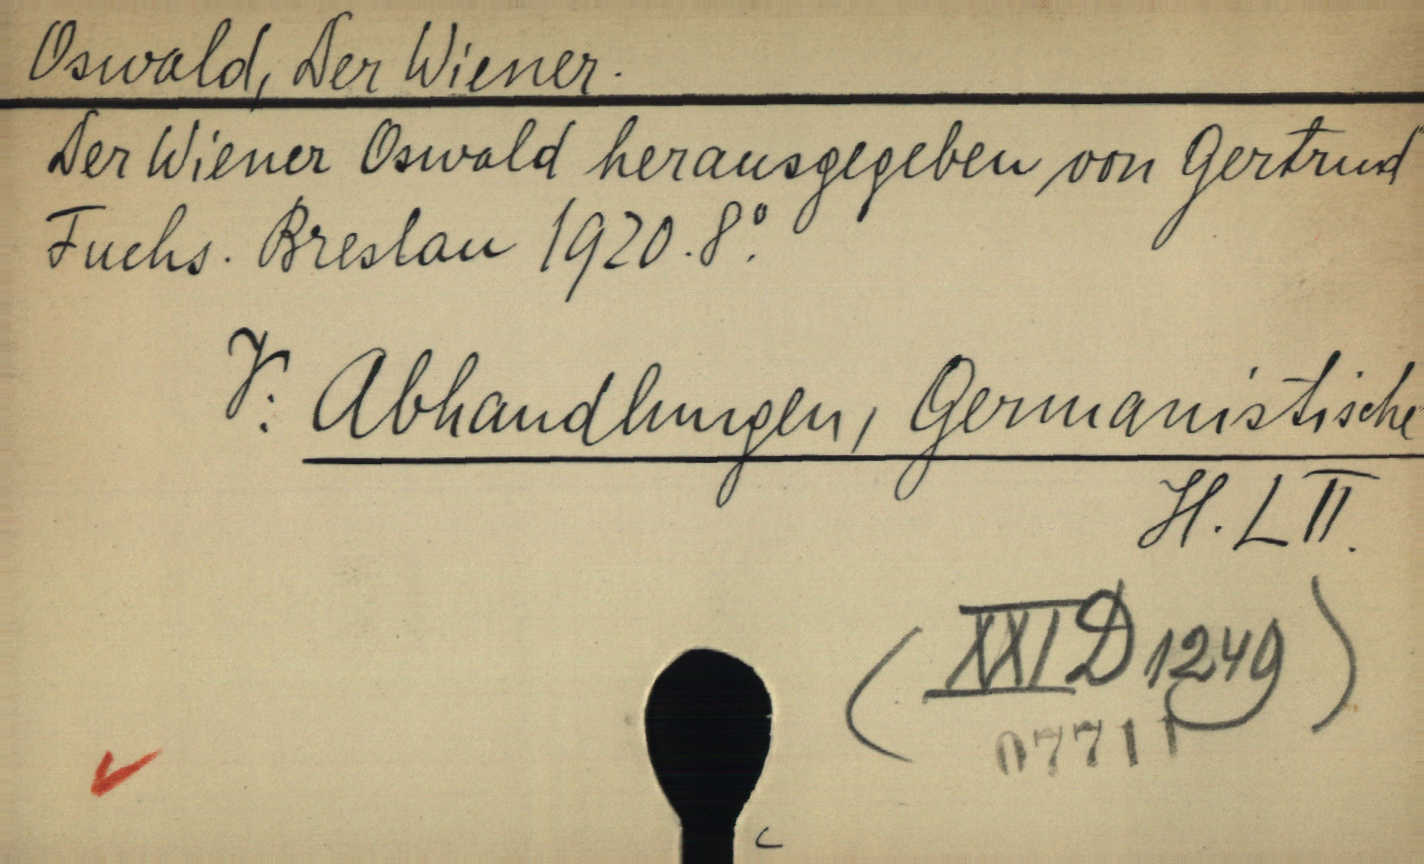 Oswald, Der Wiener.
Der Wiener Oswald herausgegeben von Gertrud
Fuchs. Breslau 1920. 8°.
V: Abhandlungen, Germanistische
H. LII.
(XXI D 1249)
07711
c